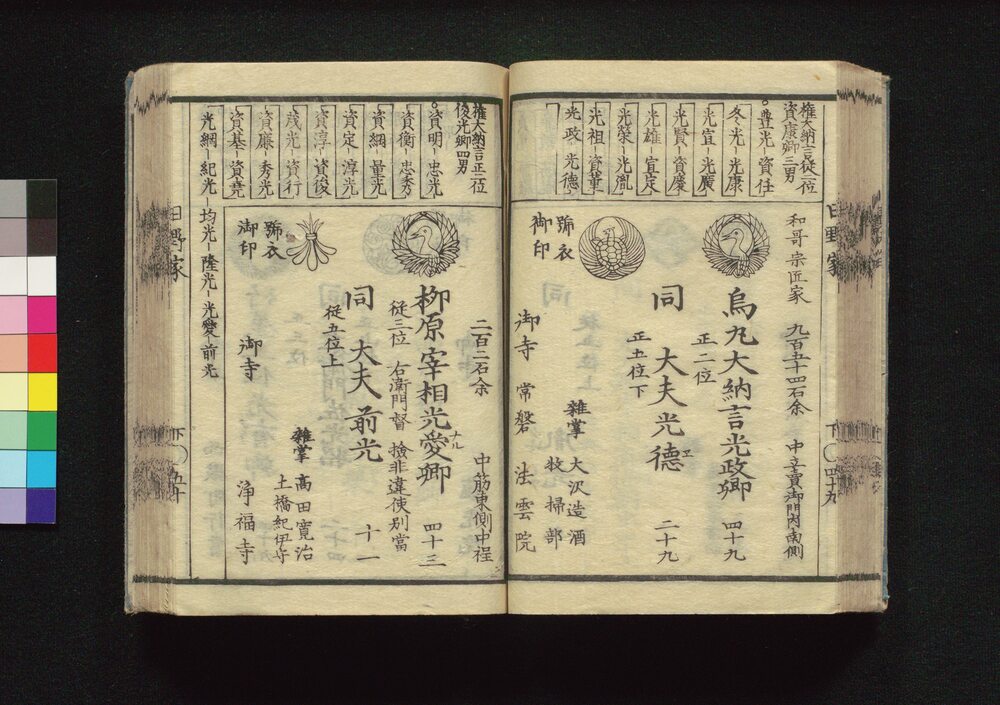 権大納言従一位
資康卿三男
豊光-資任
冬光-光康
光宣-光廣
光賢-資慶
光雄-宣定
光榮-光胤
光祖-資董
光政-光德
和哥宗匠家
九百五十四石余
中立賣御門内南側
烏丸大納言光政卿
正二位
四十九
同
大夫光德
エ
正五位下
二十九
號衣
御印
雑掌
大沢造酒
牧掃部
御寺
常磐
法雲院
日野家
下
四十九
権大納言正二位
俊光卿四男
資明-忠光
資衡-忠秀
資綱-量光
資定-淳光
資淳-資俊
茂光-資行
資廉-秀光
資基-資堯
光綱-紀光-均光-隆光-光愛-前光
二百二石余
中筋東側中程
柳原宰相光愛卿
ナル
従三位
右衛門督
撿非違使別當
四十三
同
大夫前光
従五位上
十一
號衣
御印
雑掌
高田寛治
土橋紀伊守
御寺
浄福寺
日野家
下
五十